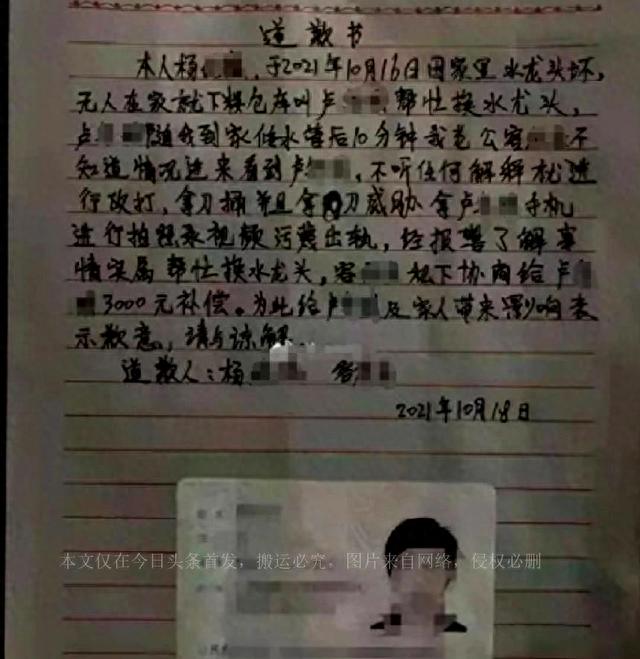 道歉书
本人杨 ,于2021年10月16日因家里水龙头坏,
无人在家就下粮仓库叫卢 帮忙换水龙头,
卢 随我到家修水管后10分钟我老公容 不
知道情况进来看到卢 ,不听任何解释就进
行攻打,拿刀捅并且拿 刀威胁拿卢 手机
进行拍视录视频污蔑出轨,经报警了解事
情实属帮忙换水龙头,容 私下协商给卢
3000元补偿。为此给卢 及家人带来影响表
示歉意,请与谅解.
道歉人:杨 容
2021年10月18日
本文仅在今日头条首发,搬运必究。图片来自网络,侵权必删